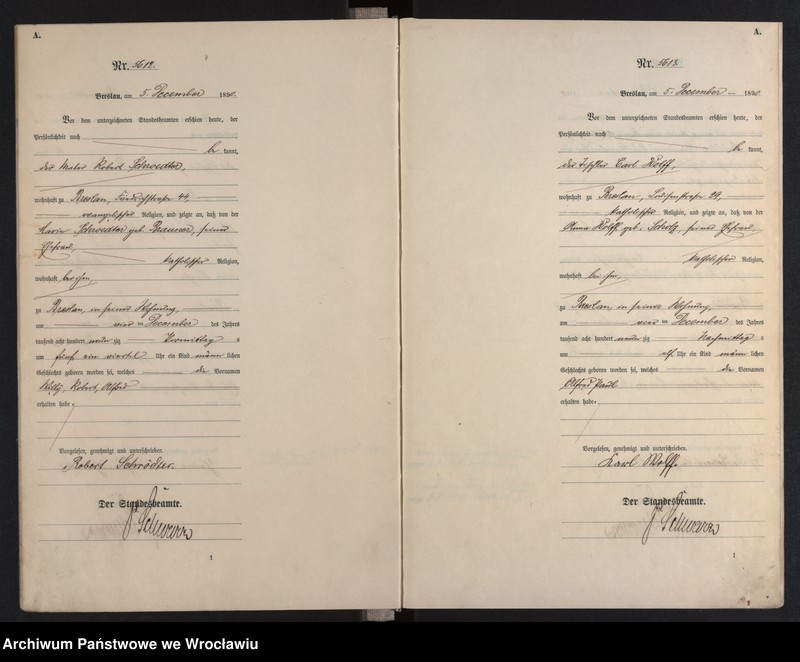 A.
Nr. 5612.
Breslau, am 5. December 1890.
Vor dem unterzeichneten Standesbeamten erschien heute, der
Persönlichkeit nach
be kannt,
der Maler Robert Schroedter,
wohnhaft zu Breslau, Friedrichstraße 44,
evangelischer Religion, und zeigte an, daß von der
Marie Schroedter geb. Brauner, seiner
Ehefrau,
katholischer Religion,
wohnhaft bei ihm,
zu Breslau, in seiner Wohnung,
am vierten December des Jahres
tausend acht hundert neun zig Vormittag s
um fünf ein viertel Uhr ein Kind männ lichen
Geschlechts geboren worden sei, welches die Vornamen
Willy, Robert, Alfred
erhalten habe.
Vorgelesen, genehmigt und unterschrieben.
Robert Schrödter.
Der Standesbeamte.
1
A.
Nr. 5613.
Breslau, am 5. December 1890.
Vor dem unterzeichneten Standesbeamten erschien heute, der
Persönlichkeit nach
be kannt,
der Tischler Carl Wolff,
wohnhaft zu Breslau, 29,
katholischer Religion, und zeigte an, daß von der
Anna Wolff, geb. Scholz, seiner Ehefrau,
katholischer Religion,
wohnhaft bei ihm,
zu Breslau, in seiner Wohnung,
am vierten December des Jahres
tausend acht hundert neun zig Nachmittag s
um elf Uhr ein Kind männ lichen
Geschlechts geboren worden sei, welches die Vornamen
Alfred Paul
erhalten habe.
Vorgelesen, genehmigt und unterschrieben.
Karl Wolff.
Der Standesbeamte.
1
Archiwum Państwowe we Wrocławiu